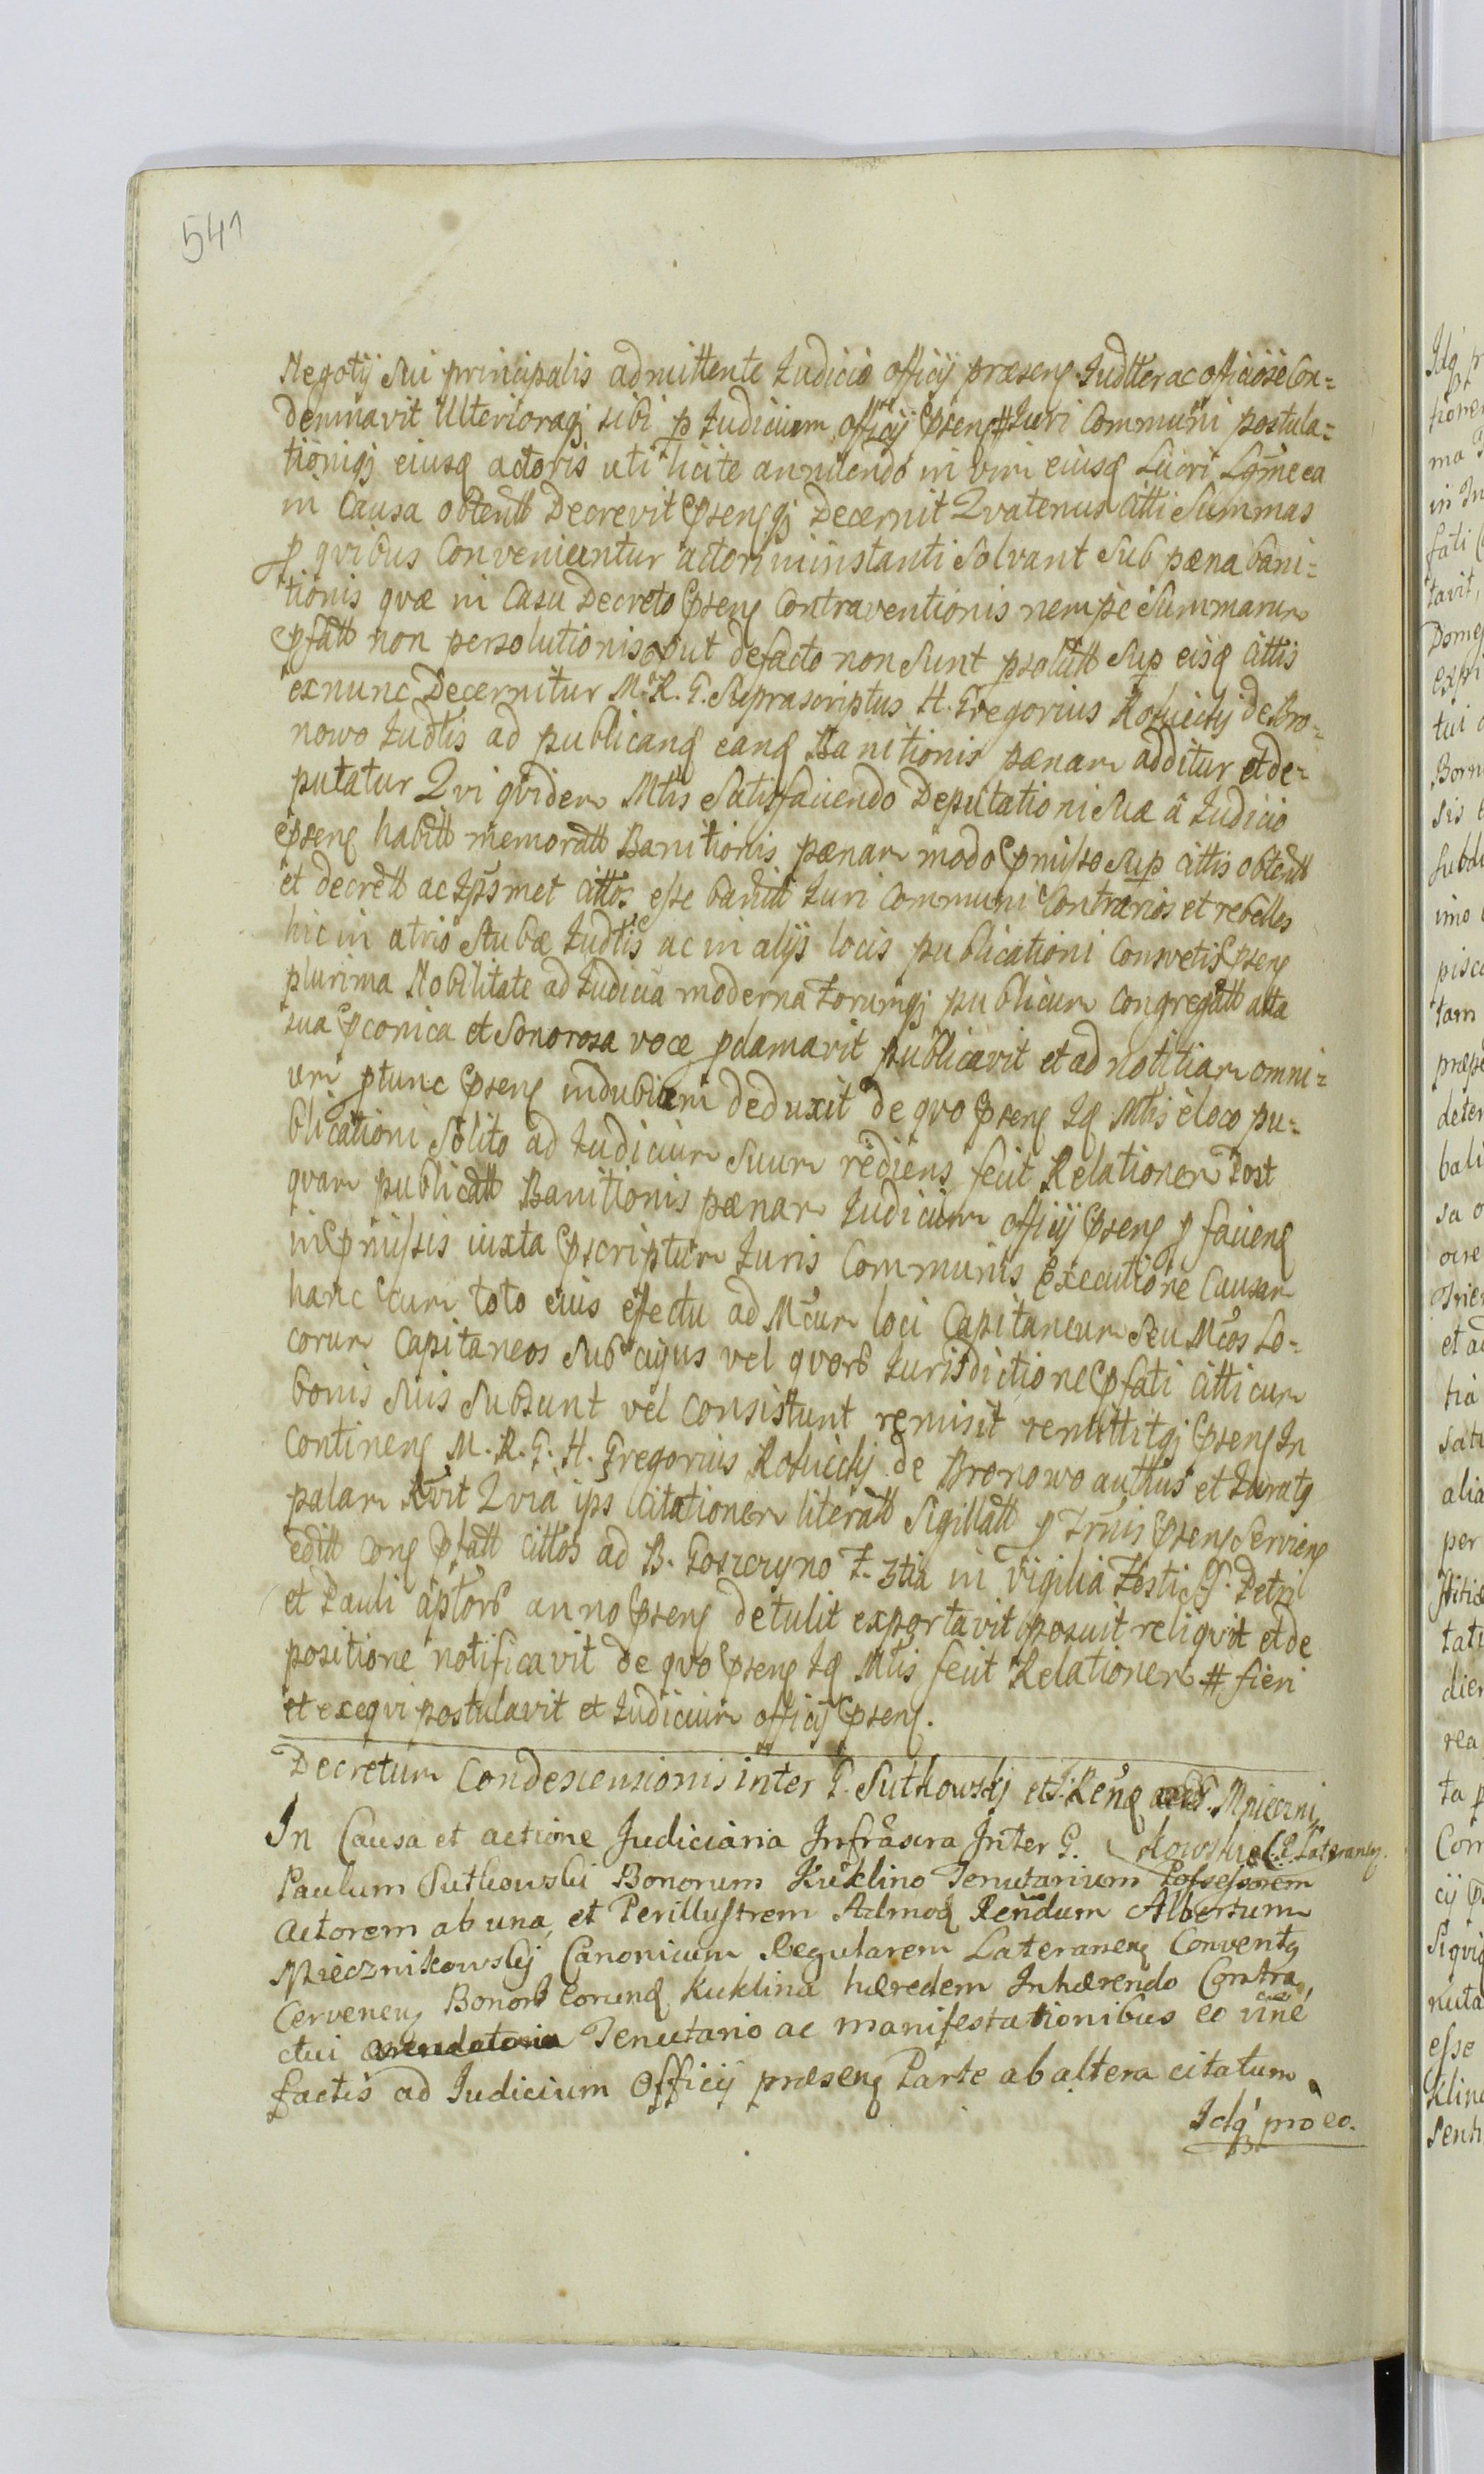 541
Negotij sui principalis admittente Judicio officij præsenq Judtter ac officiose Con=
demnavit Ulterioraqj sibi p Judicium officij Ppsenq # Juri Communi postula=
tioniqj eiusq actoris uti licite annuendo in vim eiusq Lucri Lgme ea
in Causa obtentt Decrevit Ppsenqqj Decernit Qvatenus Citti Summas
p qvibus Conveniuntur actori in instanti Solvant Sub pæna bani=
tionis qvæ in Casu Decreto Ppsenq Contraventionis nempe Summarum
Ppfatt non persolutionis put defacto non Sunt psolutt Sup eisq Cittis
exnunc Decernitur M. R. G. Suprascriptus H. Gregorius Rohiecky de Bro=
nowo Judtis ad publicanq eanq Banitionis pænam additur et de=
putatur Qvi qvidem Mtis Satisfaciendo Deputationi Suæ â Judicio
Ppsenq habitt memoratt Banitionis pænam modo Ppmisso Sup Cittis obtentt
et decrett ac Ipsmet Cittos esse banitt Juri Communi Contrarios et rebelles
hic in atrio Stubæ Judtis ac in alijs locis publicationi Consvetis Ppsenq
plurima Nobilitate ad Judicia moderna Forumqj publicum Congregatt alta
sua Ppconica et Sonorosa voce pclamavit publicavit et ad notitiam omni=
um ptunc Ppsenq indubiam deduxit de qvo Ppsenq Iq Mtis è loco pu=
blicationi Solito ad Judicium Suum rediens fecit Relationem Post
qvam publicatt Banitionis pænam Judicium officij Ppsenq p facienq
in Ppmissis iuxta Ppscriptum Juris Communis Executione Causam
hanc cum toto eius effectu ad Mcum loci Capitaneum Seu Mcos Lo=
corum Capitaneos Sub cujus vel qvorb Jurisdictione Ppfati Citti cum
bonis Suis Subsunt vel Consistunt remisit remittitqj Ppsenq In
Continenq M. R. G. H. Gregorius Rohiecky de Bronowo authus et Juratq
palam Rvit Qvia ips Citationem literatt Sigillatt p Trnis Ppsenq Servienq
editt Conq Ppfatt Cittos ad B. Goszczyno F. 3tia in Vigilia Festi S. Petri
et Pauli aptorb anno Ppsenq detulit exportavit posuit reliqvit et de
positione notificavit de qvo Ppsenq Iq Mtis fecit Relationem # fieri
et exeqvi postulavit et Judicium officij Ppsenq.
Decretum Condescensionis inter G. Sutkowskj et Renq Mnieczni
kowski C. R. Lateranen.
In Causa et actione Judiciaria Infrascra Inter G.
Paulum Sutkowski Bonorum Kuklino Tenutarium Possessorem
Actorem ab una, et Perillustrem Admoq Rendum Albertum
Miecznikowskj Canonicum Regularem Lateranenq Conventq
Cervenenq Bonorb Eorunq Kuklina hæredem Inhærendo Contra
ctui Arendatorio Tenutario ac manifestationibus eo vine
factis ad Judicium Officij præsenq Parte ab altera citatum
Idq pro eo.